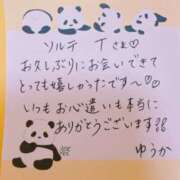 ソルテ Tさま♡
お久しぶりにお会いできて
とっても嬉しかったです〜♡♡
いつもお心遣いも本当に
ありがとうございます!!
ゆうか